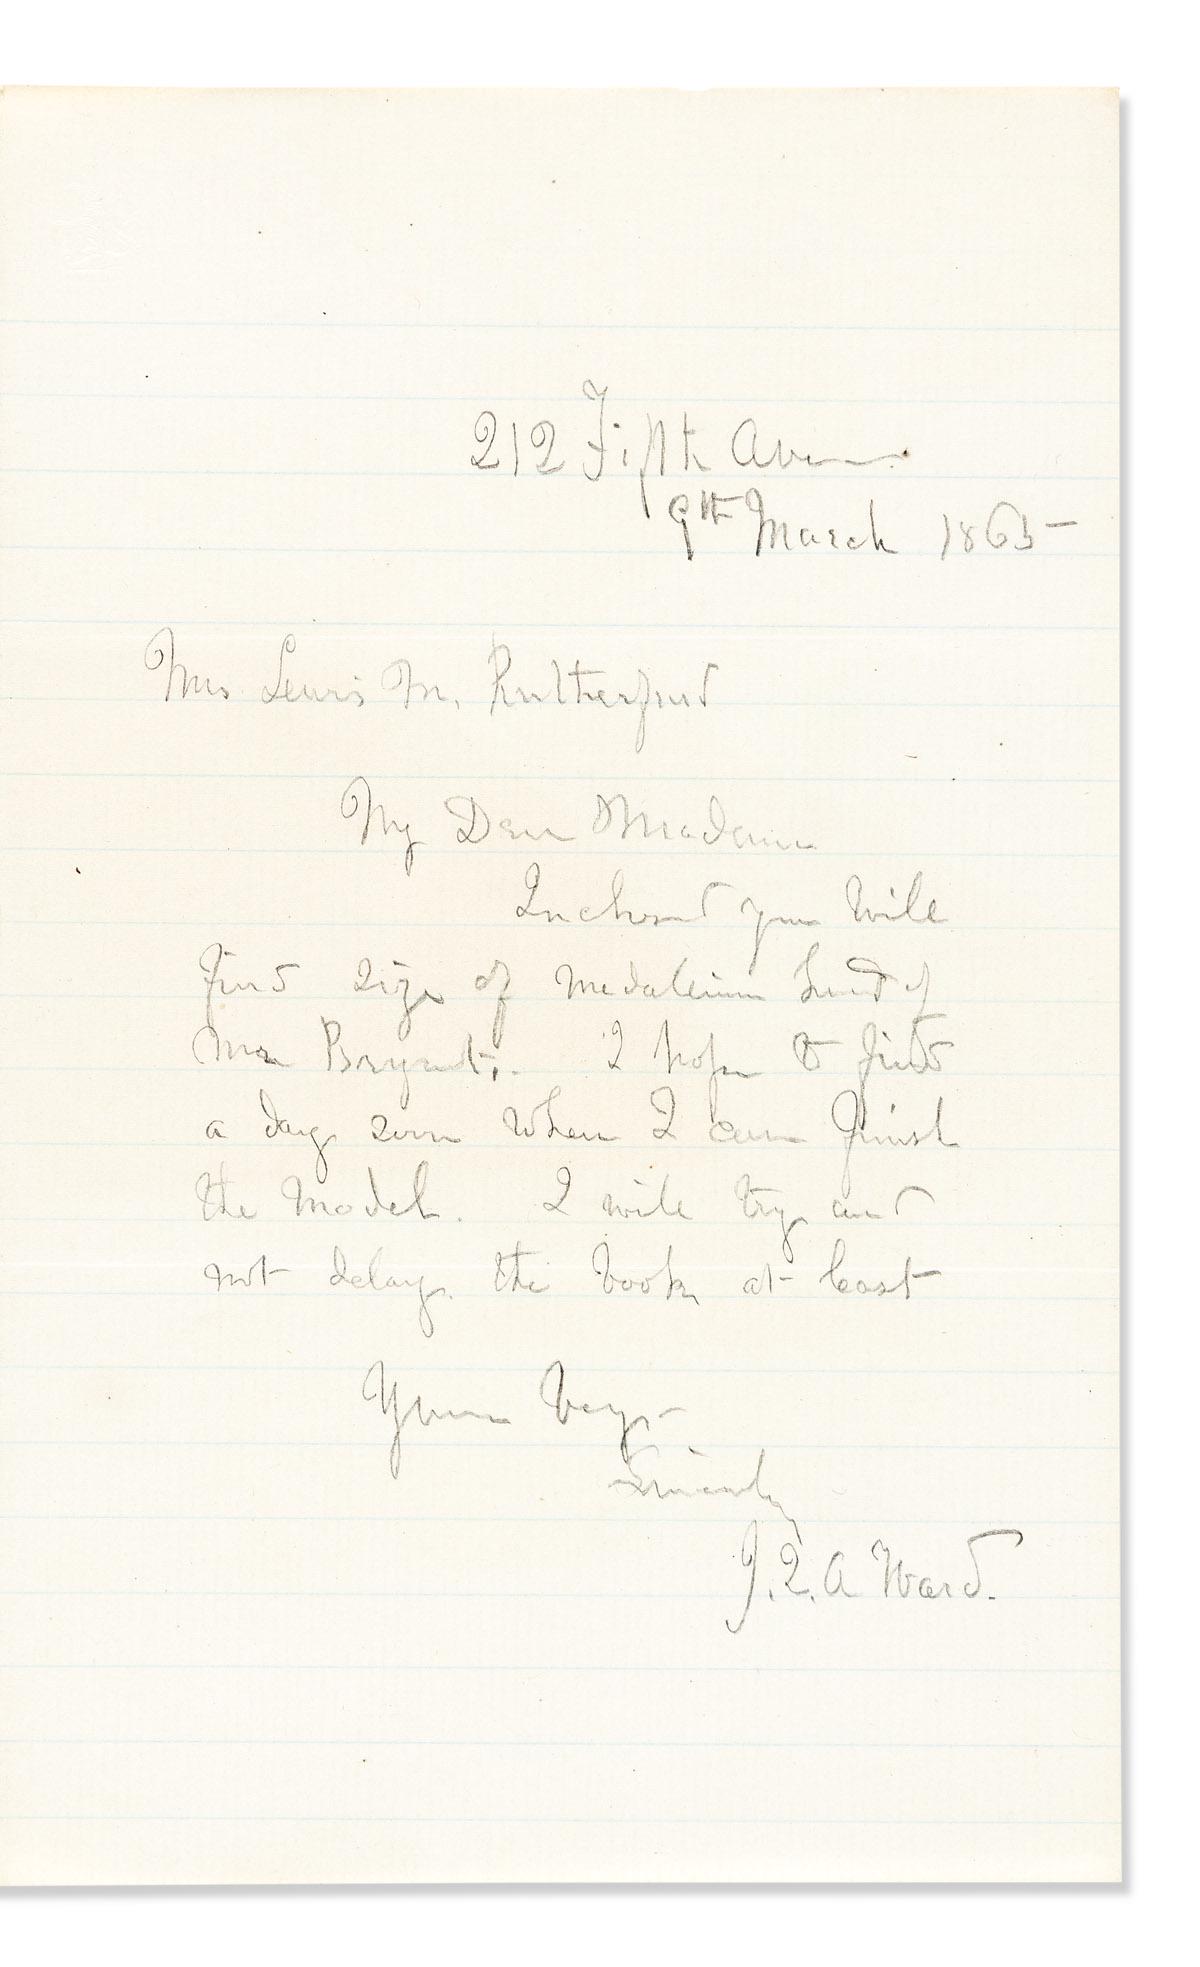 212 Fifth Aven
9th March 1865
Mrs Lewis M. Rutherfurd
My Dear Madam
Inclosed you will
find size of medallion head of
Mr Bryant. I hope to find
a day soon when I can finish
the model. I will try and
not delay the book at least
Yours Very
Sincerely
J. Q. A Ward.